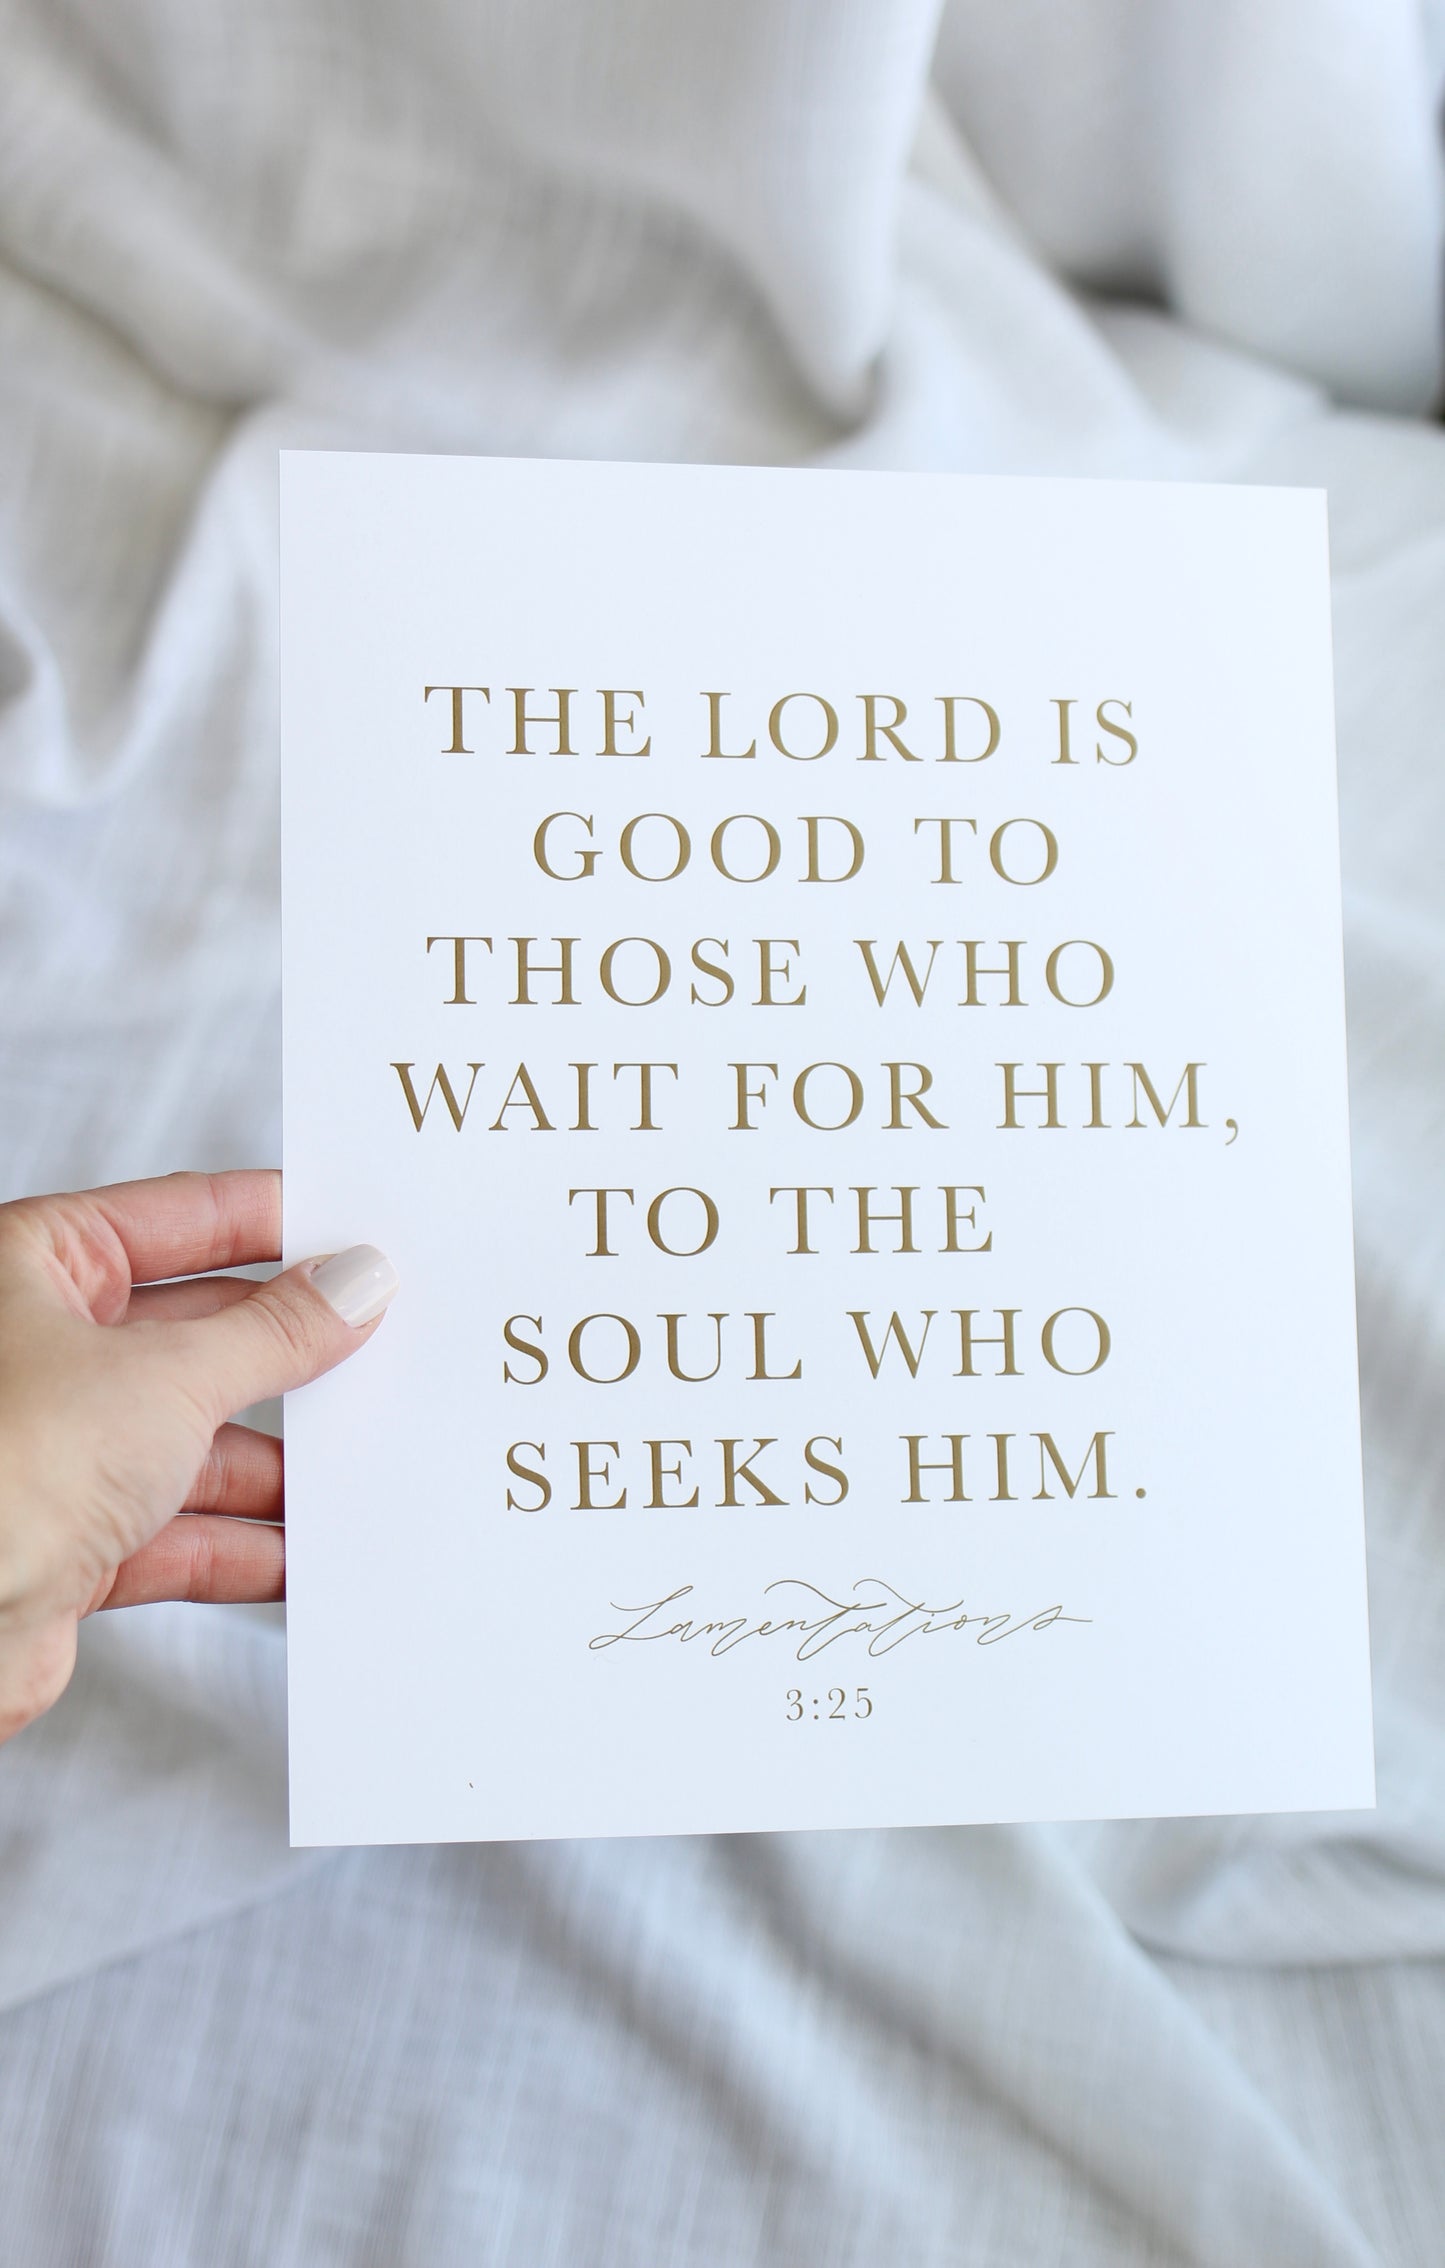 THE LORD IS
GOOD TO
THOSE WHO
WAIT FOR HIM,
TO THE
SOUL WHO
SEEKS HIM.
Lamentations
3:25